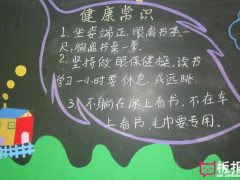 健康常识
1.坐姿端正,眼离书本一
尺,胸离书桌一拳。
2.坚持做眼保健操,读书
学习一小时要休息,或远眺。
3.不躺在床上看书,不在车
上看书,毛巾要专用。
板报